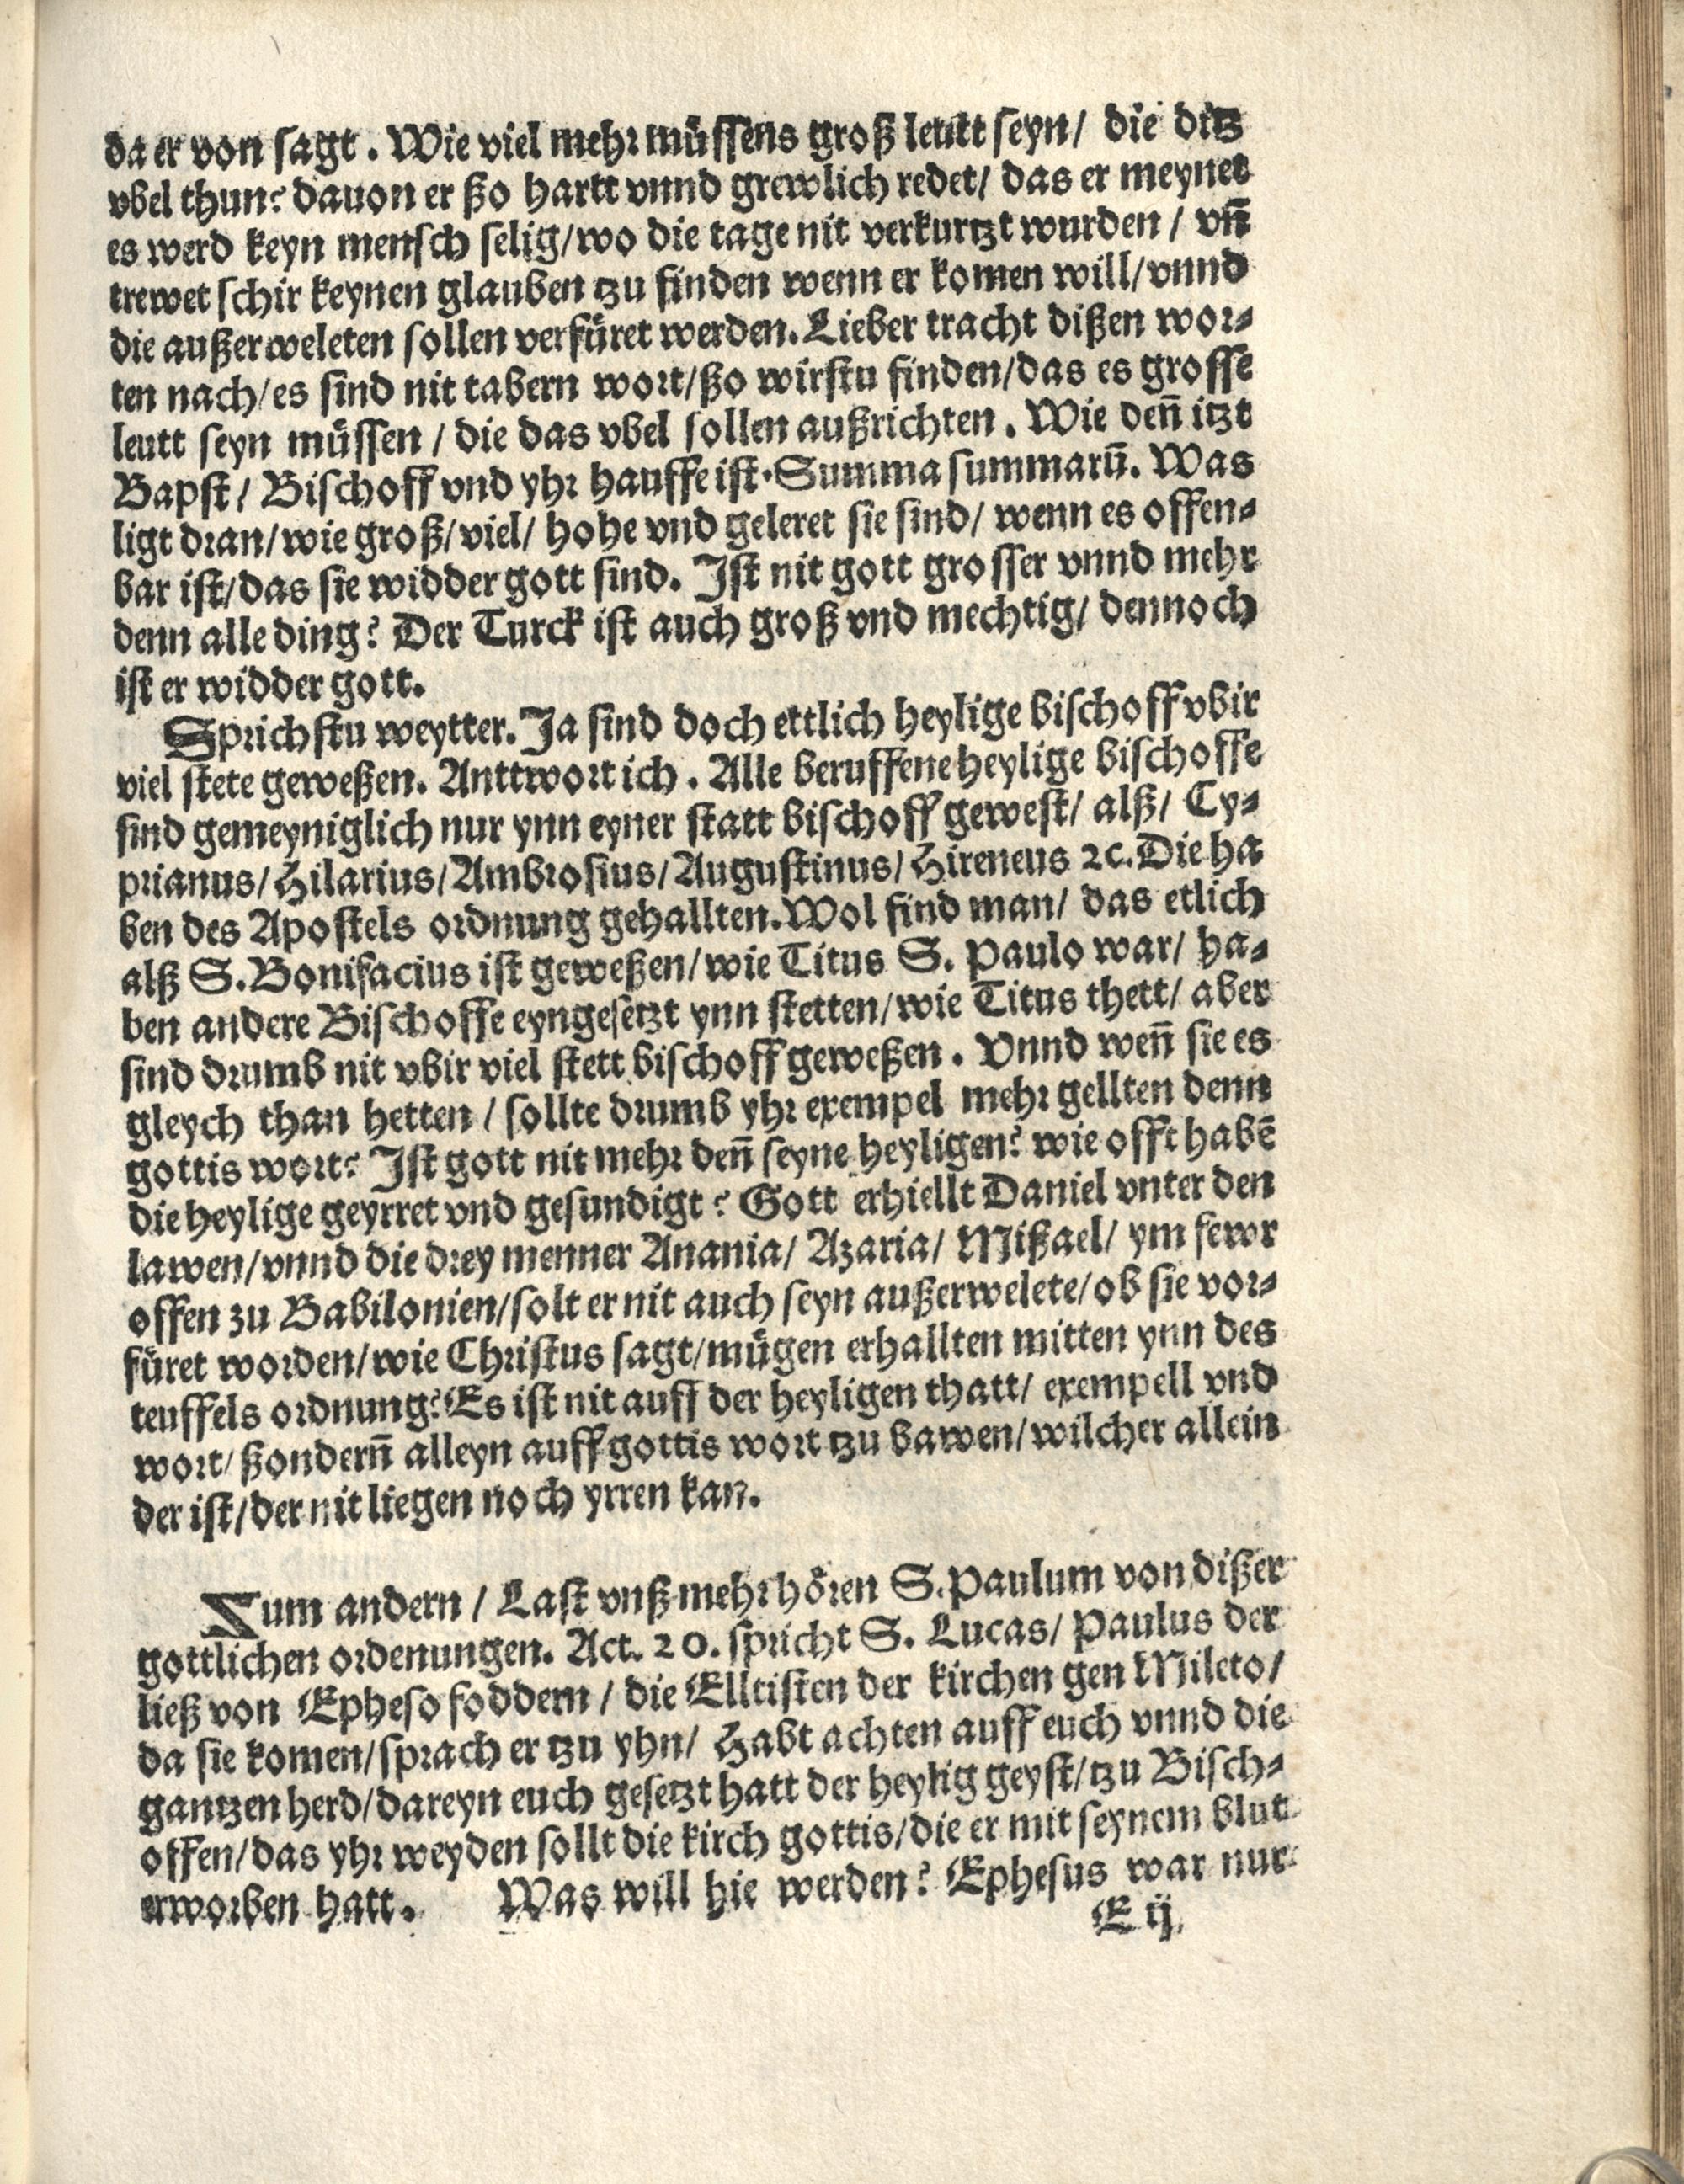 da er von sagt. Wie viel mehr müssens groß leutt seyn/ die ditz
vbel thun? dauon er ßo hartt vnnd grewlich redet/ das er meynet
es werd keyn mensch selig/wo die tage nit verkurtzt wurden / vñ
trewet schir keynen glauben tzu finden wenn er komen will/vnnd
die außerweleten sollen verfüret werden. Lieber tracht dißen wor⸗
ten nach/es sind nit tabern wort/ßo wirstu finden/das es grosse
leutt seyn müssen / die das vbel sollen außrichten. Wie deñ itzt
Bapst/ Bischoff vnd yhr hauffe ist. Summa summarū. Was
ligt dran/wie groß/viel/ hohe vnd geleret sie sind/ wenn es offen⸗
bar ist/das sie widder gott sind. Ist nit gott grosser vnnd mehr
denn alle ding? Der Turck ist auch groß vnd mechtig/ dennoch
ist er widder gott.
Sprichstu weytter. Ja sind doch ettlich heylige bischoff vbir
viel stete geweßen. Anttwort ich. Alle beruffene heylige bischoffe
sind gemeyniglich nur ynn eyner statt bischoff gewest/ alß/ Cy⸗
prianus/Hilarius/Ambrosius/Augustinus/Hireneus ꝛc. Die ha
ben des Apostels ordnung gehallten. Wol find man/ das etlich
alß S. Bonifacius ist geweßen/wie Titus S. Paulo war/ ha⸗
ben andere Bischoffe eyngesetzt ynn stetten/wie Titus thett/ aber
sind drumb nit vbir viel stett bischoff geweßen. Vnnd weñ sie es
gleych than hetten / sollte drumb yhr exempel mehr gellten denn
gottis wort? Ist gott nit mehr deñ seyne heyligen? wie offt habē
die heylige geyrret vnd gesundigt? Gott erhiellt Daniel vnter den
lawen/vnnd die drey menner Anania/ Azaria/ Mißael/ ym fewr
offen zu Babilonien/solt er nit auch seyn außerwelete/ob sie vor⸗
füret worden/wie Christus sagt/mügen erhallten mitten ynn des
teuffels ordnung? Es ist nit auff der heyligen thatt/ exempell vnd
wort/ ßonderñ alleyn auff gottis wort tzu bawen/wilcher allein
der ist/der nit liegen noch yrren kan.
Zum andern / Last vnß mehr hören S. Paulum von dißer
gottlichen ordenungen. Act. 20. spricht S. Lucas/ Paulus der
ließ von Epheso foddern / die Elltisten der kirchen gen Mileto/
da sie komen/sprach er tzu yhn/ Habt achten auff euch vnnd die
gantzen herd/dareyn euch gesetzt hatt der heylig geyst/tzu Bisch⸗
offen/das yhr weyden sollt die kirch gottis/die er mit seynem blut
erworben hatt. Was will hie werden? Ephesus war nur
E ij